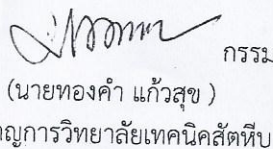 กรรม
(นายทองคำ แก้วสุข )
ญการวิทยาลัยเทคนิคสัตหีบ